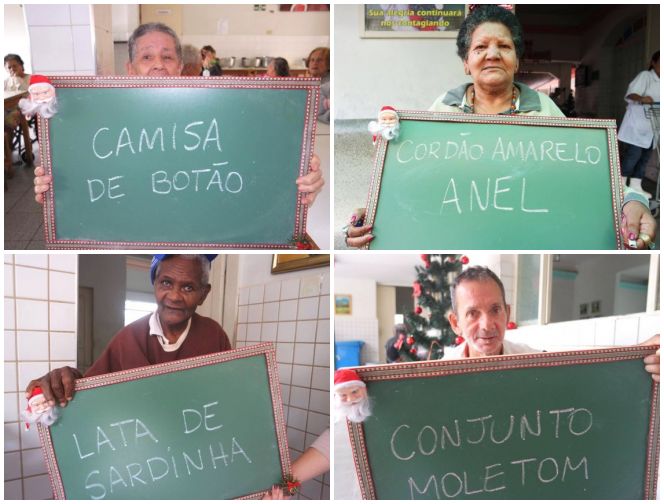 CAMISA
DE BOTÃO
Sua alegria continuará
nos contagiando
CORDÃO AMARELO
ANEL
LATA DE
SARDINHA
CONJUNTO
MOLETOM